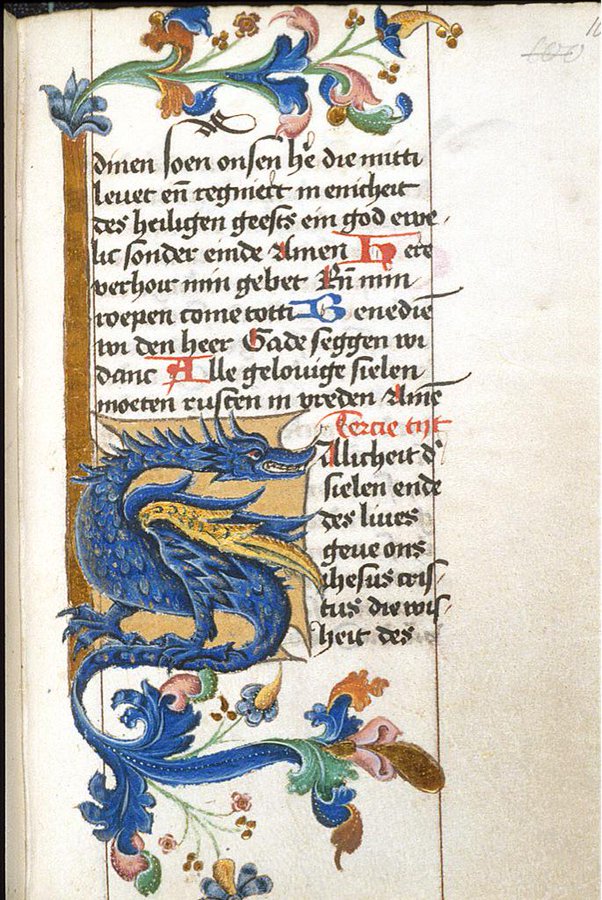 dinen soen onsen hē die mitti
levet en̄ regniert in enicheit
des heiligen geests ein god ewe
lic sonder einde Amen Here
verhoir min gebet En̄ min
roepen come totti Benedie
wi den heer Gade seggen wi
danc Alle gelovige sielen
moeten rusten in vreden Amē
Tercie tijt
Salicheit d'
sielen ende
des lives
geve ons
ihesus cris
tus die wis
heit des